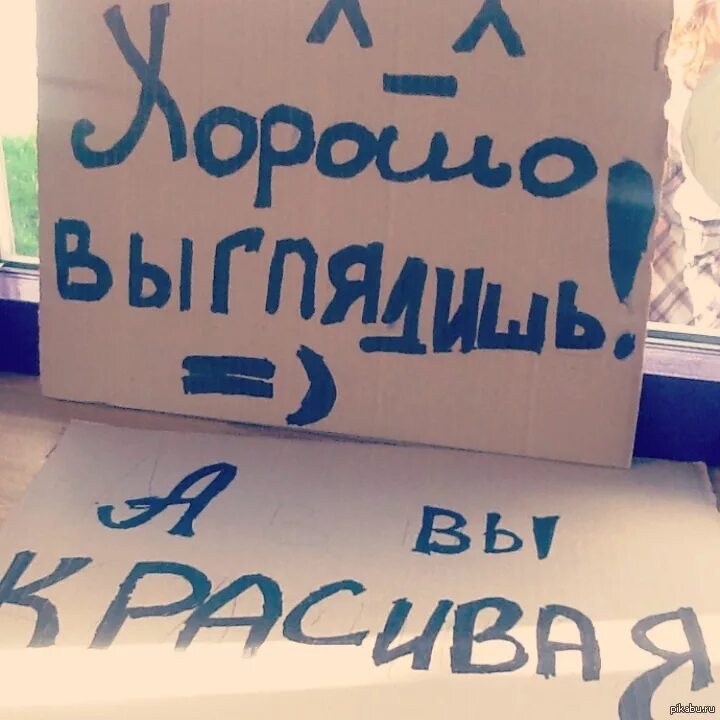 ^_^
Хорошо
выглядишь!
=)
А вы
КРАСИВАЯ
pikabu.ru